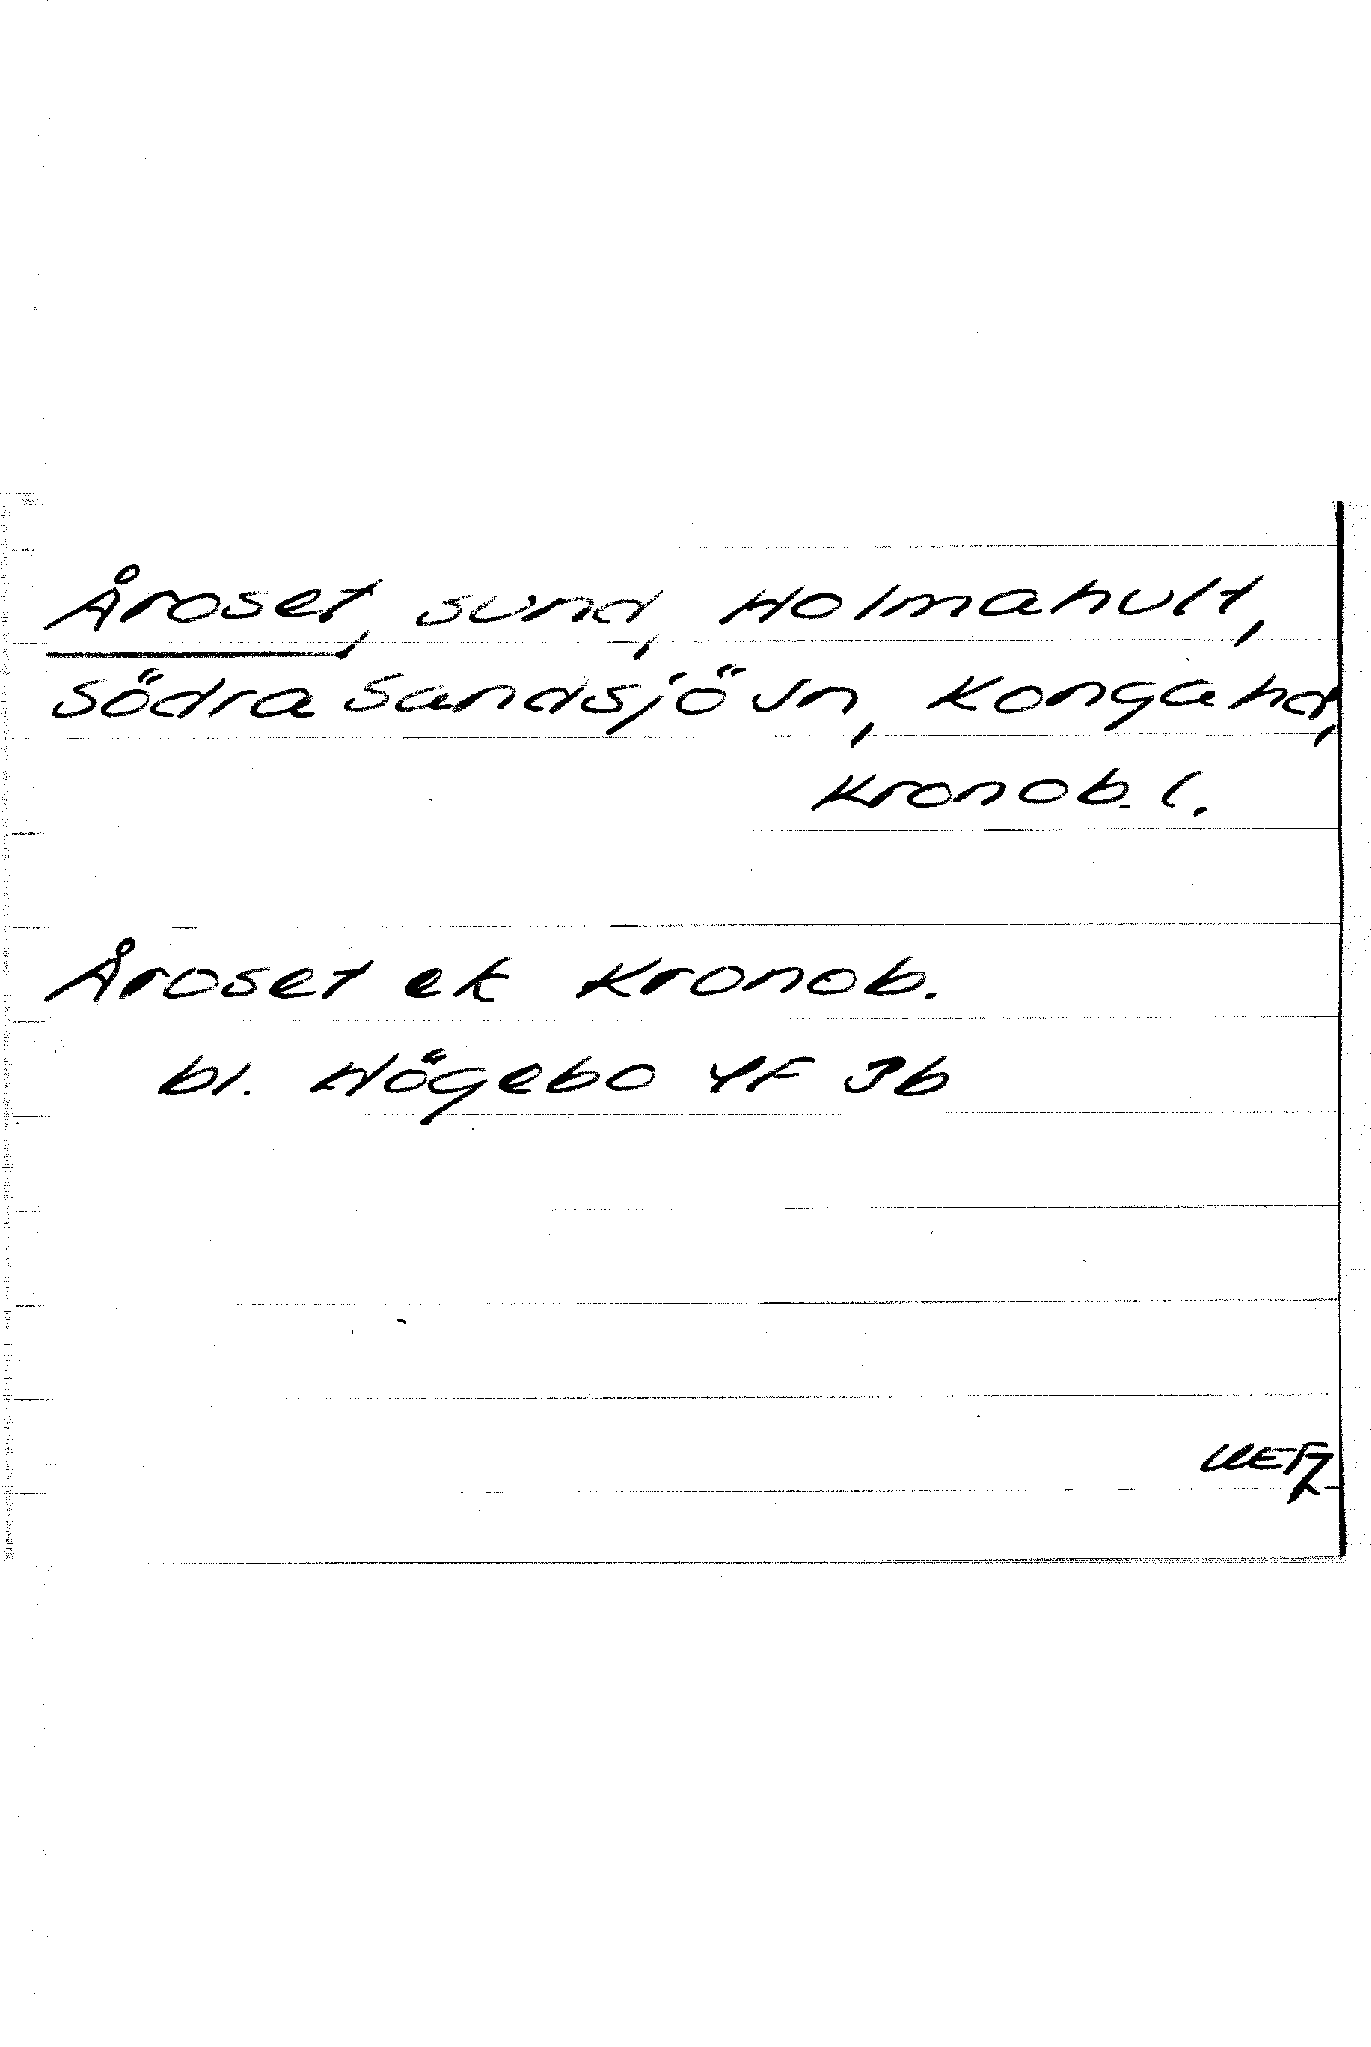 Åroset, sund, Holmahult,
Södra Sandsjö sn, Konga hd,
Kronob. l.
Åroset ek Kronob.
bl. Högebo 4F 3b